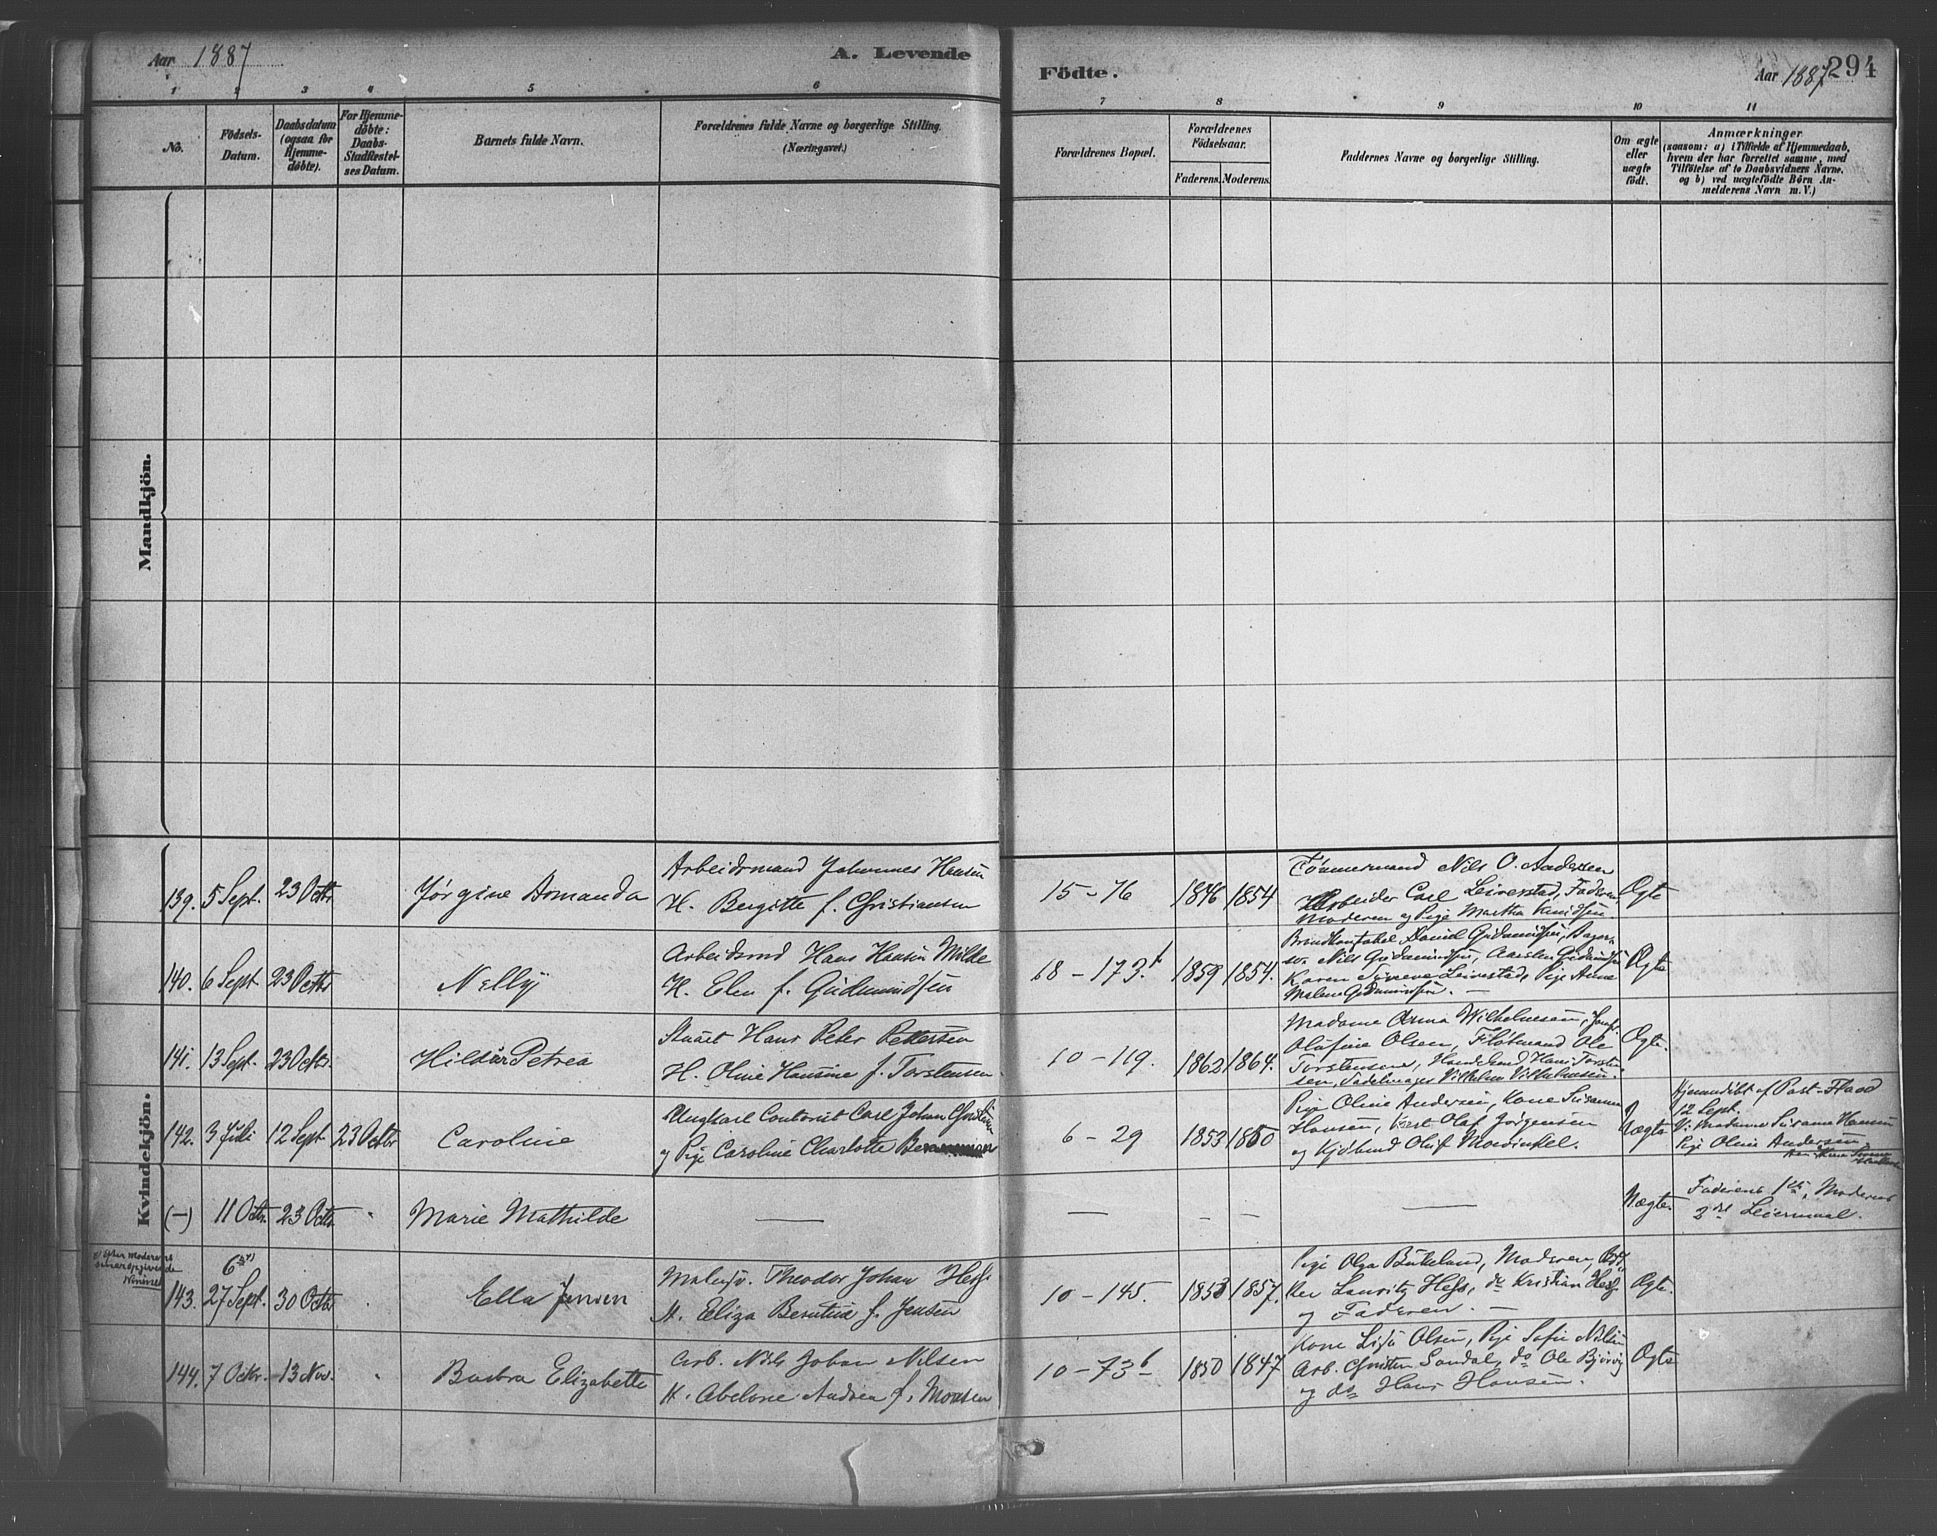 Aar 1887
A. Levende
Födte.
Aar 1887
294
1 2 3 4 5 6 7 8 9 10 11
No.
Födsels-
Datum.
Daabsdatum
(ogsaa for
Hjemme-
döbte).
For Hjemme-
döbte:
Daabs-
Stadfæstel-
ses Datum.
Barnets fulde Navn.
Forældrenes fulde Navne og borgerlige Stilling.
(Næringsvei.)
Forældrenes Bopæl.
Forældrenes
Födselsaar.
Faderens. Moderens.
Faddernes Navne og borgerlige Stilling.
Om ægte
eller
uægte
födt.
Anmærkninger
(saasom: a) i Tilfælde af Hjemmedaab,
hvem der har forrettet samme, med
Tilföielse af to Daabsvidners Navne.
og b) ved uægtefödte Börn An-
melderens Navn m. V.)
Mandkjön.
Kvindekjön.
139. 5 Sept. 23 Octbr
Jørgine Amanda
Arbeidsmand Johannes Hansen
H. Bergitte f. Christiansen
15 - 76 1846 1854
Tømmermand Nils O. Andersen
Arbeider Carl Leirestad, Faderen
Moderen og Pige Martha Knudsen.
Ægte
140. 6 Sept 23 Octbr
Nelly
Arbeidsmd Hans Hansen Milde
H. Elen f. Gudmundsen
68 - 173. 1859 1854.
Brandkonstabel Daniel Gudmundsen,
Nils Gudmundsen, Gudmundsen
Karen Leirestad, Pige Anne
Malene Gudmundsen. —
Ægte
141. 13 Sept. 23 Octbr.
Hildur Petrea
Stuert Hans Peter Pettersen
H. Oline Hansine f. Torstensen
10 - 119. 1862 1864.
Madame Anna Wilhelmsen, Jomf.
Olufine Olsen, Flötmand Ole
Torstensen, Hans Torsten-
sen, Sadelmager Vilhelm Vilhelmsen.
Ægte.
142. 3 Juli 12 Sept 23 Octbr
Caroline
Ungkarl Contorist Carl Johan
og Pige Caroline Charlotte
6 - 29 1853 1850
Pige Oline Andersen, Kone Susanne
Hansen, Olaf Jörgensen
og Kjöbmd Oluf Mowinkel.
Uægte
Hjemmedöbt af Past. Flood
12 Sept.
V. Madame Susanne Hansen
Pige Oline Andersen
(—) 11 Octbr. 23 Octbr "
Marie Mathilde
— — — — —
Uægte.
Faderens 1ste, Moderens
2det Leiermaal.
Efter Moderens
6
143. 27 Sept. 30 Octbr "
Ella Jensen
Theodor Johan Hess
H. Eliza Berntine f. Jensen
10 - 145. 1853 1857.
Pige Olga Birkeland, Moderen,
Lauritz Hess, do Kristian Hess
og Faderen. —
Ægte.
144. 7 Octbr. 13 Nov. "
Barbra Elizabette
Arb. Nils Johan Nilsen
H. Abelone Andrea f. Monsen
10 - 73 1850 1847
Kone Olsen, Pige Sofie Nilsen
Arb. Christen Sandal, do Ole
og do Hans Hansen.
Ægte